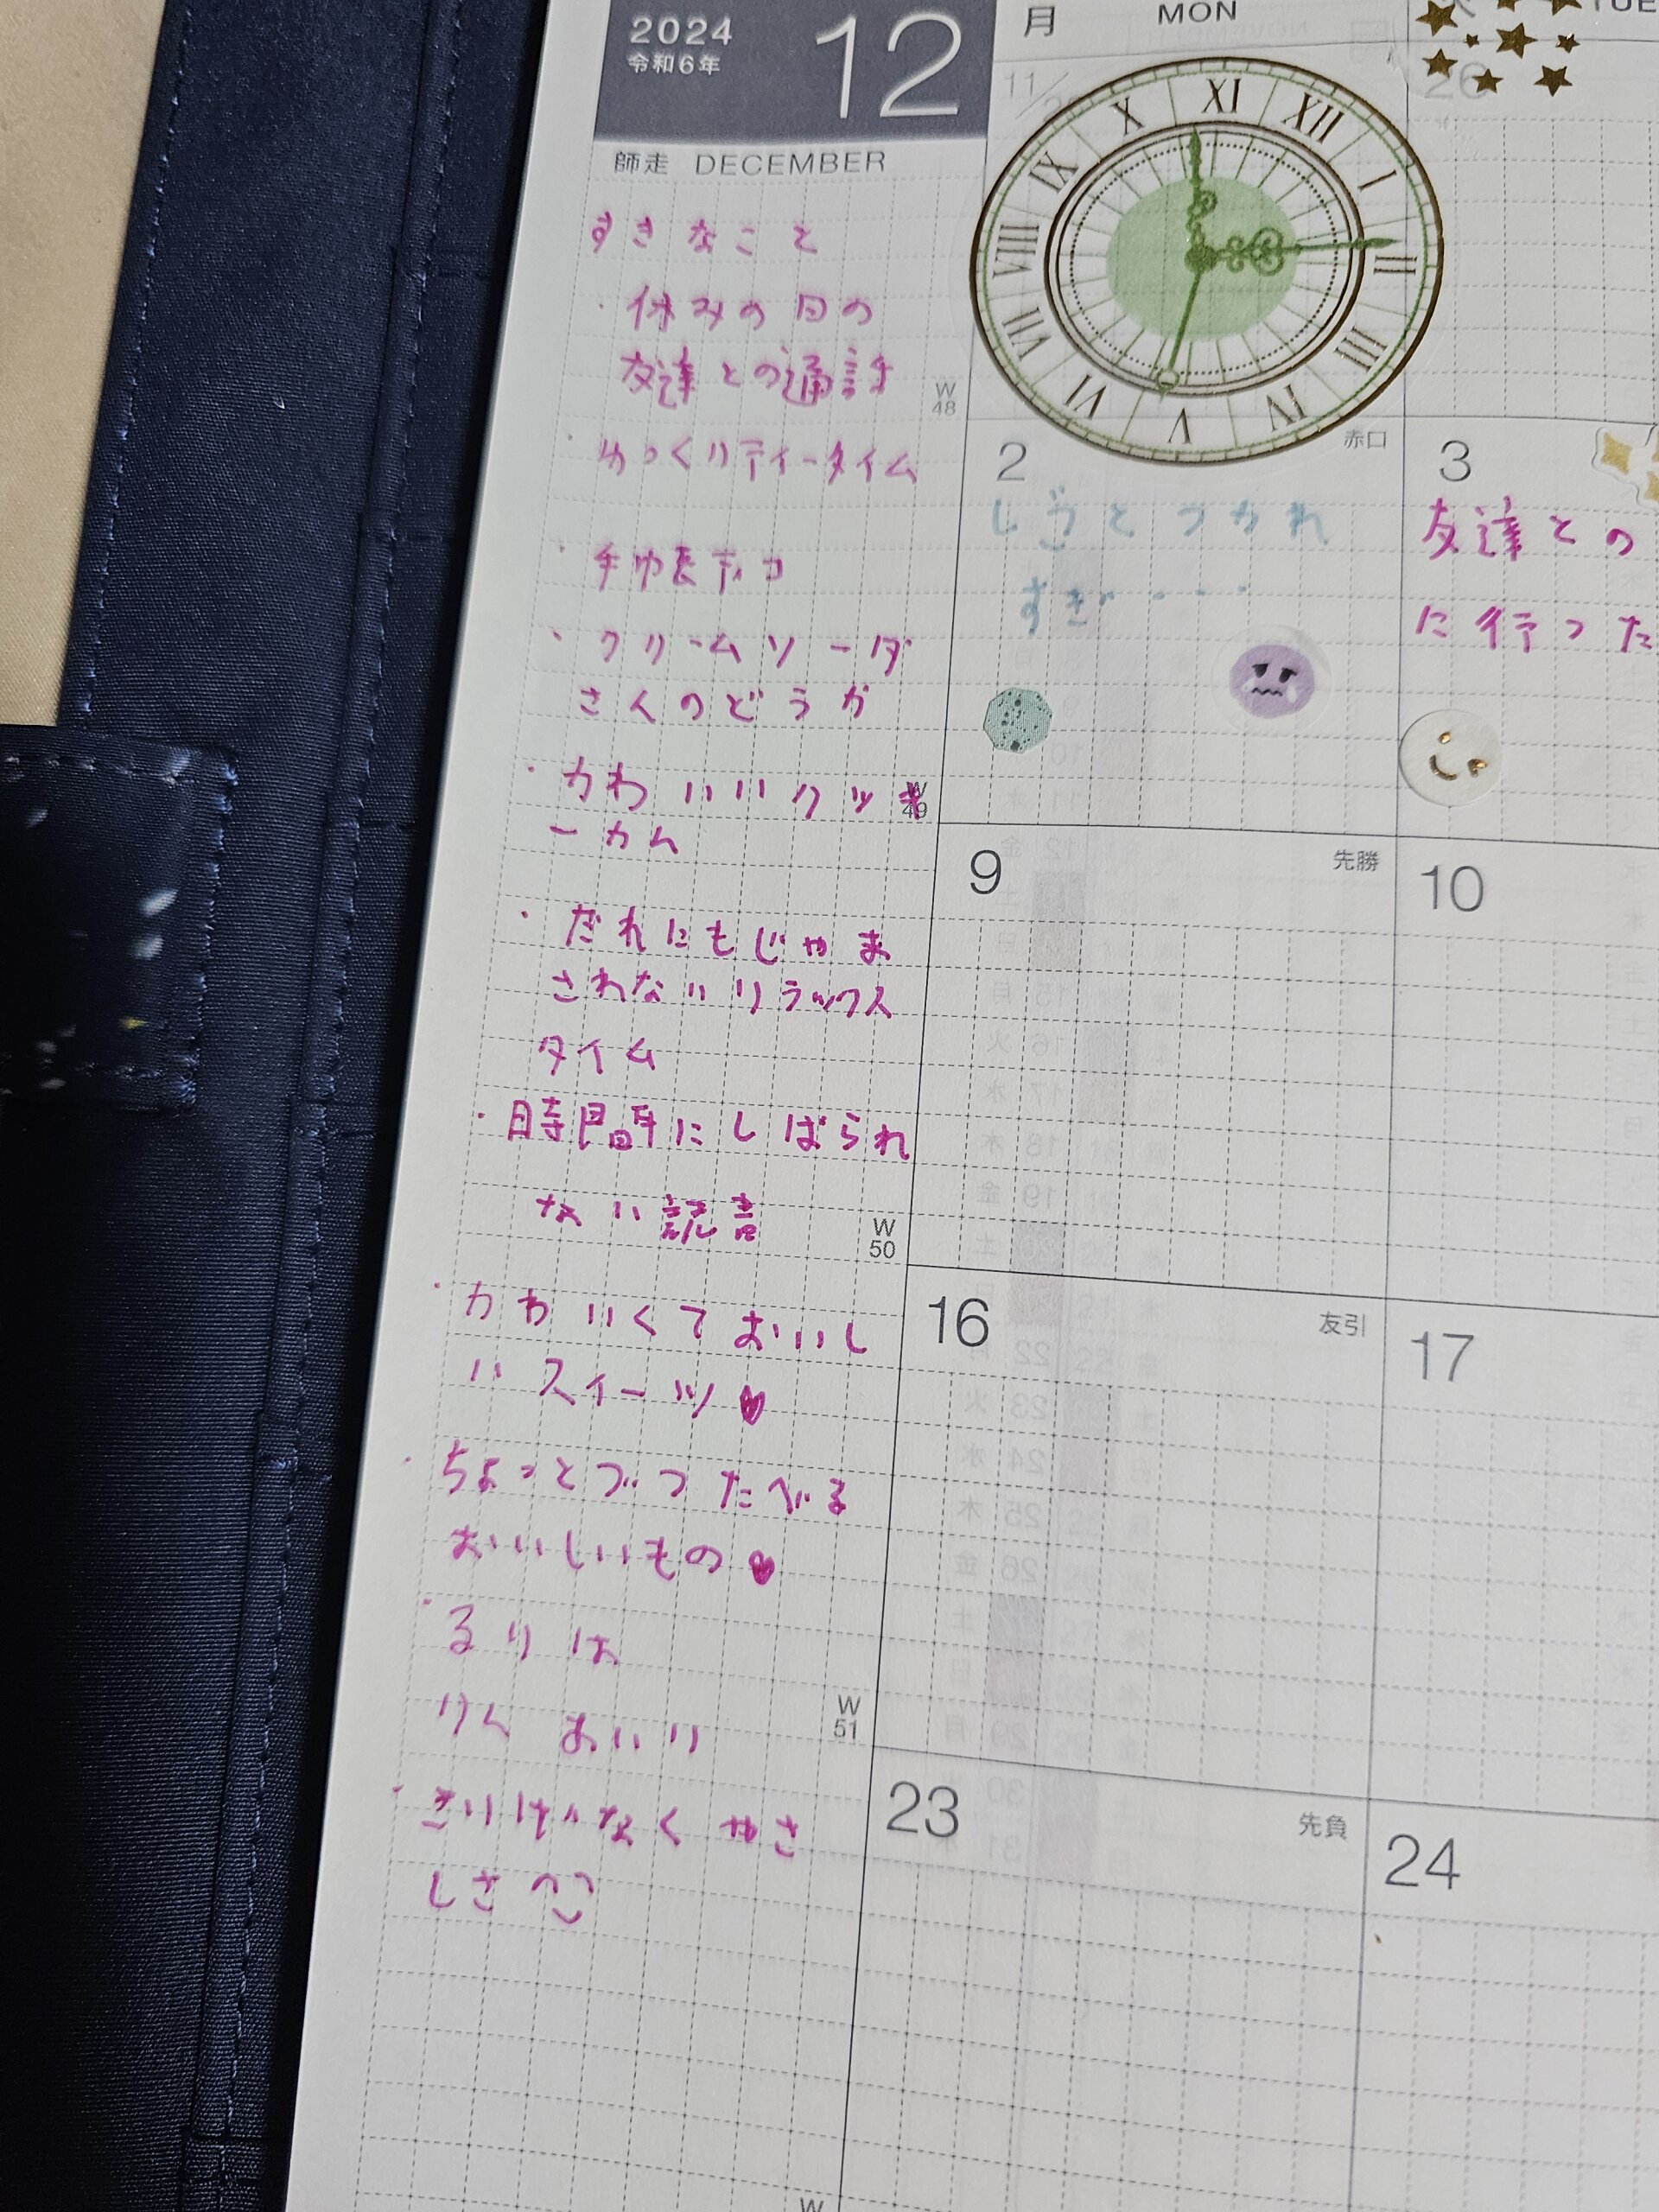 2024
令和6年
12
師走 DECEMBER
月 MON
火 TUE
11/
26
すきなこと
・休みの日の
友達との通話
・ゆっくりティータイム
・手帳デコ
・クリームソーダ
さんのどうが
・かわいいクッキ
ーカん
・だれにもじゃま
されないリラックス
タイム
・時間にしばられ
ない読書
・かわいくておいし
いスイーツ♥
・ちょっとづつたべる
おいしいもの♥
・るりは
りん あいり
・さりげなくやさ
しさ
W
48
W
49
W
50
W
51
W
XI
XII
I
II
III
IV
V
VI
VII
VIII
IX
X
2 赤口
しごとつかれ
すぎ・・・・
3
友達との
に行った
9 先勝
10
16 友引
17
23 先負
24